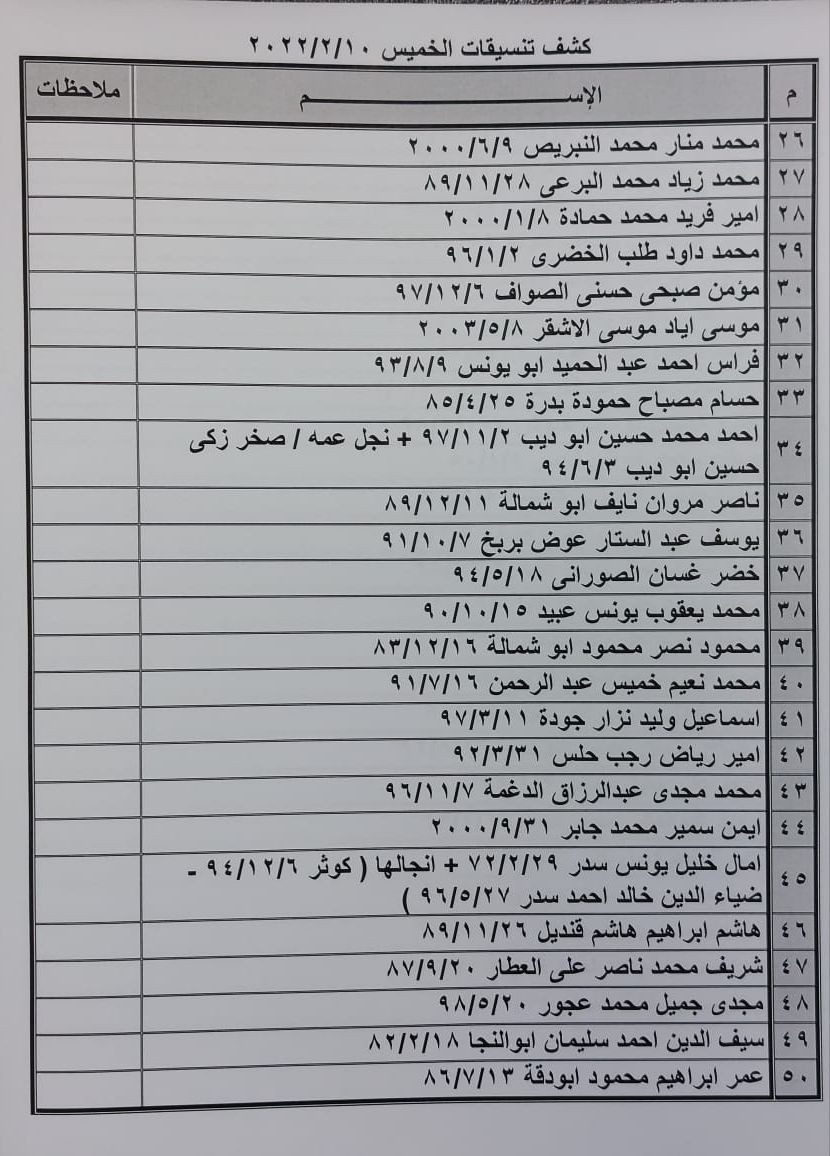 كشف تنسيقات الخميس ٢٠٢٢/٢/١٠
م الإســـــــــــــم ملاحظات
٢٦ محمد منار محمد النبريص ٢٠٠٠/٦/٩
٢٧ محمد زياد محمد البرعى ٨٩/١١/٢٨
٢٨ امير فريد محمد حمادة ٢٠٠٠/١/٨
٢٩ محمد داود طلب الخضرى ٩٦/١/٢
٣٠ مؤمن صبحى حسنى الصواف ٩٧/١٢/٦
٣١ موسى اياد موسى الاشقر ٢٠٠٣/٥/٨
٣٢ فراس احمد عبد الحميد ابو يونس ٩٣/٨/٩
٣٣ حسام مصباح حمودة بدرة ٨٥/٤/٢٥
٣٤ احمد محمد حسين ابو ديب ٩٧/١١/٢ + نجل عمه / صخر زكى
حسين ابو ديب ٩٤/٦/٣
٣٥ ناصر مروان نايف ابو شمالة ٨٩/١٢/١١
٣٦ يوسف عبد الستار عوض بربخ ٩١/١٠/٧
٣٧ خضر غسان الصورانى ٩٤/٥/١٨
٣٨ محمد يعقوب يونس عبيد ٩٠/١٠/١٥
٣٩ محمود نصر محمود ابو شمالة ٨٣/١٢/١٦
٤٠ محمد نعيم خميس عبد الرحمن ٩١/٧/١٦
٤١ اسماعيل وليد نزار جودة ٩٧/٣/١١
٤٢ امير رياض رجب حلس ٩٢/٣/٣١
٤٣ محمد مجدى عبدالرزاق الدغمة ٩٦/١١/٧
٤٤ ايمن سمير محمد جابر ٢٠٠٠/٩/٣١
٤٥ امال خليل يونس سدر ٧٢/٢/٢٩ + انجالها ( كوثر ٩٤/١٢/٦ -
ضياء الدين خالد احمد سدر ٩٦/٥/٢٧ )
٤٦ هاشم ابراهيم هاشم قنديل ٨٩/١١/٢٦
٤٧ شريف محمد ناصر على العطار ٨٧/٩/٢٠
٤٨ مجدى جميل محمد عجور ٩٨/٥/٢٠
٤٩ سيف الدين احمد سليمان ابوالنجا ٨٢/٢/١٨
٥٠ عمر ابراهيم محمود ابودقة ٨٦/٧/١٣